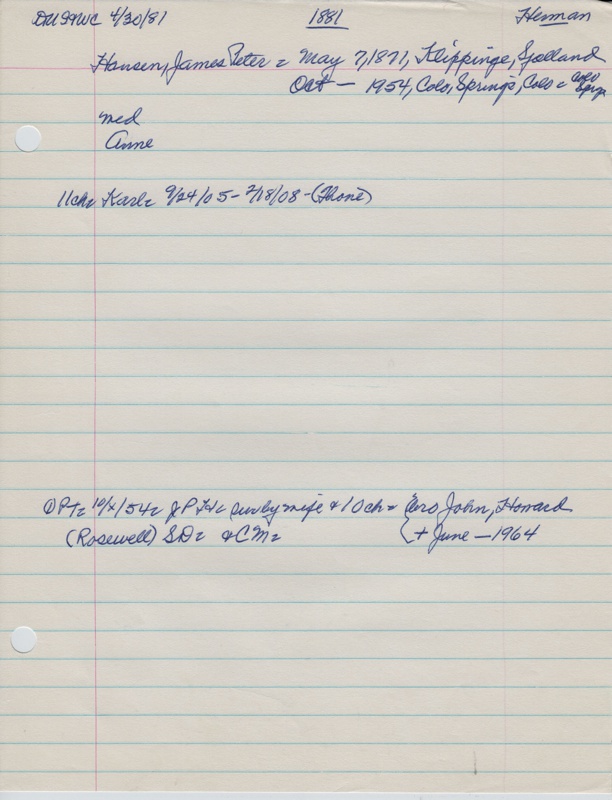 4/30/81 1881 Herman
Hansen, James Peter = May 7, 1871, Klippinge, Sjolland
Oct — 1954, Colo, Springs, Colo = Colo Spgs
med
Anne
11ch= Karl= 9/24/05 - 2/18/08 - (Thone)
10/x/54= JPH= surv by wife & 10ch= Bro John, Howard
(Rosewell) SD= & CM= {+ June — 1964